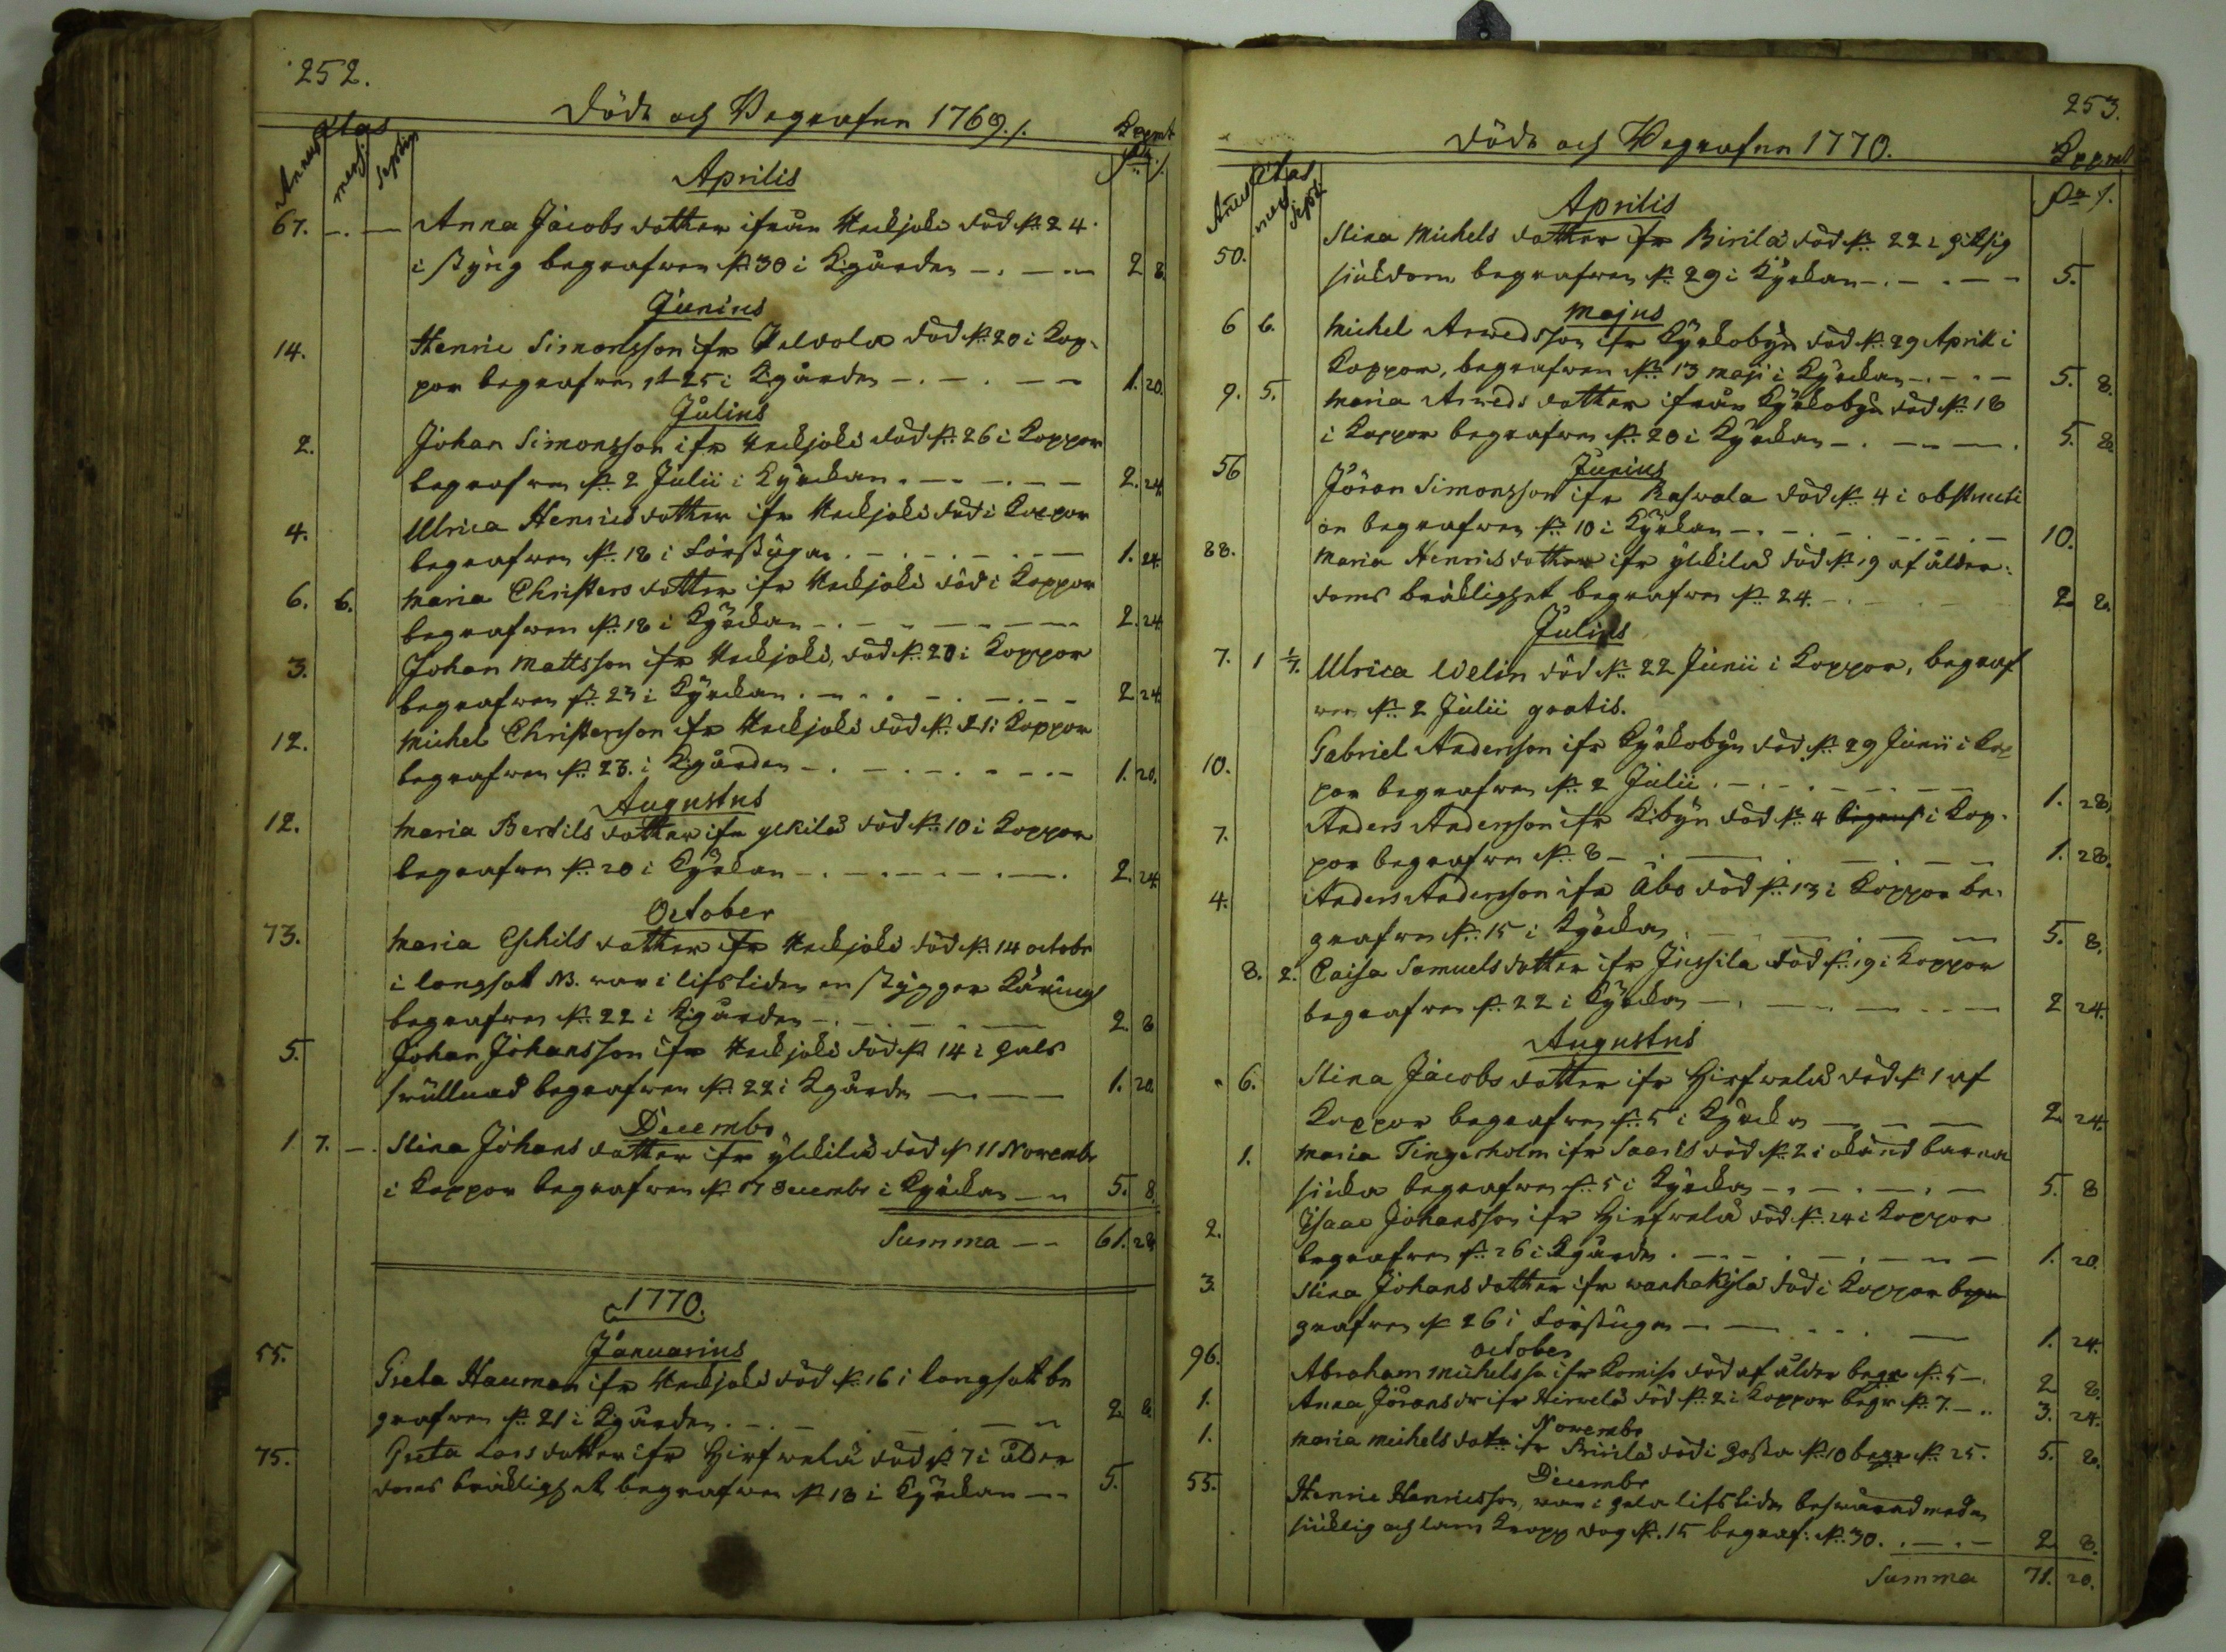 252.
Döde och Begrafne 1769./.
Ætas
Annus mens. septim
Koppmt
Aprilis
67. Anna Jacobs dotter ifrån Keckjoki död d. 24.
i styng begrafwen d. 30 i Kgården 2 8.
Junius
14. Henric Simonsson ifr död d. 20 i Kop-
por begrafwen d. 25 i Kgården 1. 20.
Julius
2. Johan Simonsson ifr Keckjoki död d. 26 i Koppor
begrafwen d. 2 Julii i Kyrckan 2. 24.
4. Ulrica Henrics dotter ifr Keckjoki död i Koppor
begrafwen d. 18 i Förstugan 1. 24.
6. 6. Maria Christers dotter ifr Keckjoki död i Koppor
begrafwen d. 18 i Kyrckan 2. 24
3. Johan Mattsson ifr Keckjoki, död d. 20 i Koppor
begrafwen d. 23 i Kyrckan 2 24
12. Michel Christersson ifr Keckjoki död d. 21 i Koppor
begrafwen d. 23. i Kgården 1. 20.
Augustus
12. Maria Bertils dotter ifr ylkilä död d. 10 i Koppor
begrafwen d. 20 i Kyrkan 2. 24.
October
73. Maria Eschils dotter ifr Keckjoki död d. 14 octobr
i långsot NB. war i lifstiden en stygger Käring
begrafwen d. 22 i Kgården 2. 8
5. Johan Johansson ifr Keckjoki död d. 14 i hals
swullnad begrafwen d. 22 i Kgården 1. 20.
Decembr.
1 7. Stina Johans dotter ifr ylkilä död d. 11 Novembr
i Koppor begrafwen d. 17 Decembr i Kyrckan 5. 8.
Summa 61. 28
1770.
Januarius
55. Greta Hauman ifr Keckjoki död d. 16 i långsot be
grafwen d. 21 i Kgården 2 8.
75. Greta Lars dotter ifr Hirfwelä död d. 7 i ålder
doms bräklighet begrafwen d. 13 i Kyrckan 5.
253.
Döde och Begrafne 1770.
Ætas
Annus mens Sept.
Koppmt
Aprilis
50. Stina Michels dotter ifr Birilä död d. 22 i hitsig
siukdom begrafwen d. 29 i Kyrkan 5.
Majus
6 6. Michel Arwedsson ifr Kyrkobyn död d. 29 April i
Koppor, begrafwen d. 13 maji i Kyrckan 5. 8.
9. 5. Maria Arweds dotter ifrån Kyrkobyn död d. 18
i Koppor begrafwen d. 20 i Kyrckan 5. 8.
Junius
56 Jöran Simonsson ifr död d. 4 i obstructi
on begrafwen d. 10 i Kyrkan 10.
88. Maria Henrics dotter ifr ylkilä död d. 19 af ålder-
doms bräklighet begrafwen d. 24. 2. 8.
Julius
7. 1 1/7. Ulrica Welin död d. 22 Junii i Koppor, begraf
wen d. 2 Julii gratis.
10. Gabriel Andersson ifr Kyrkobyn död d. 29 Junii i Kop
por begrafwen d. 2 Julii 1. 28.
7. Anders Andersson ifr K:byn död d. 4 i Kop-
por begrafwen d. 8 1. 28.
4. Anders Andersson ifr Åbo död d. 13 i Koppor be-
grafwen d. 15 i Kyrckan 5. 8.
8. 2. Caisa Samuels dotter ifr Jussila död d. 19 i Koppor
begrafwen d. 22 i Kyrckan 2 24.
Augustus
6. Stina Jacobs dotter ifr Hirfwelä död d. 1 af
Koppor begrafwen d. 5 i Kyrckan 2 24.
1. Maria Tingerholm ifr Saaris död d. 2 i okänd barna
siuka begrafwen d. 5 i Kyrckan 5. 8
2. Isaac Johansson ifr Hirfwelä död d. 24 i Koppor
begrafwen d. 26 i Kgården 1. 20.
3. Stina Johans dotter ifr wanhakylä död i Koppor be
grafwen d. 26 i Förstugan 1. 24.
october
96. Abraham Michelsson ifr död af ålder begr d. 5 2 8.
1. Anna Jörans dr ifr Hirwelä död d. 2 i Koppor begr d. 7. 3. 24.
Novembr
1. Maria Michels dotr ifr Birilä död i Hosta d. 10 begr d. 25. 5. 8.
Decembr
55. Henric Henricsson, war i hela lifstiden beswärad med en
siuklig och lam Kropp dog d. 15 begraf: d. 30. 2 8.
Summa 71. 20.